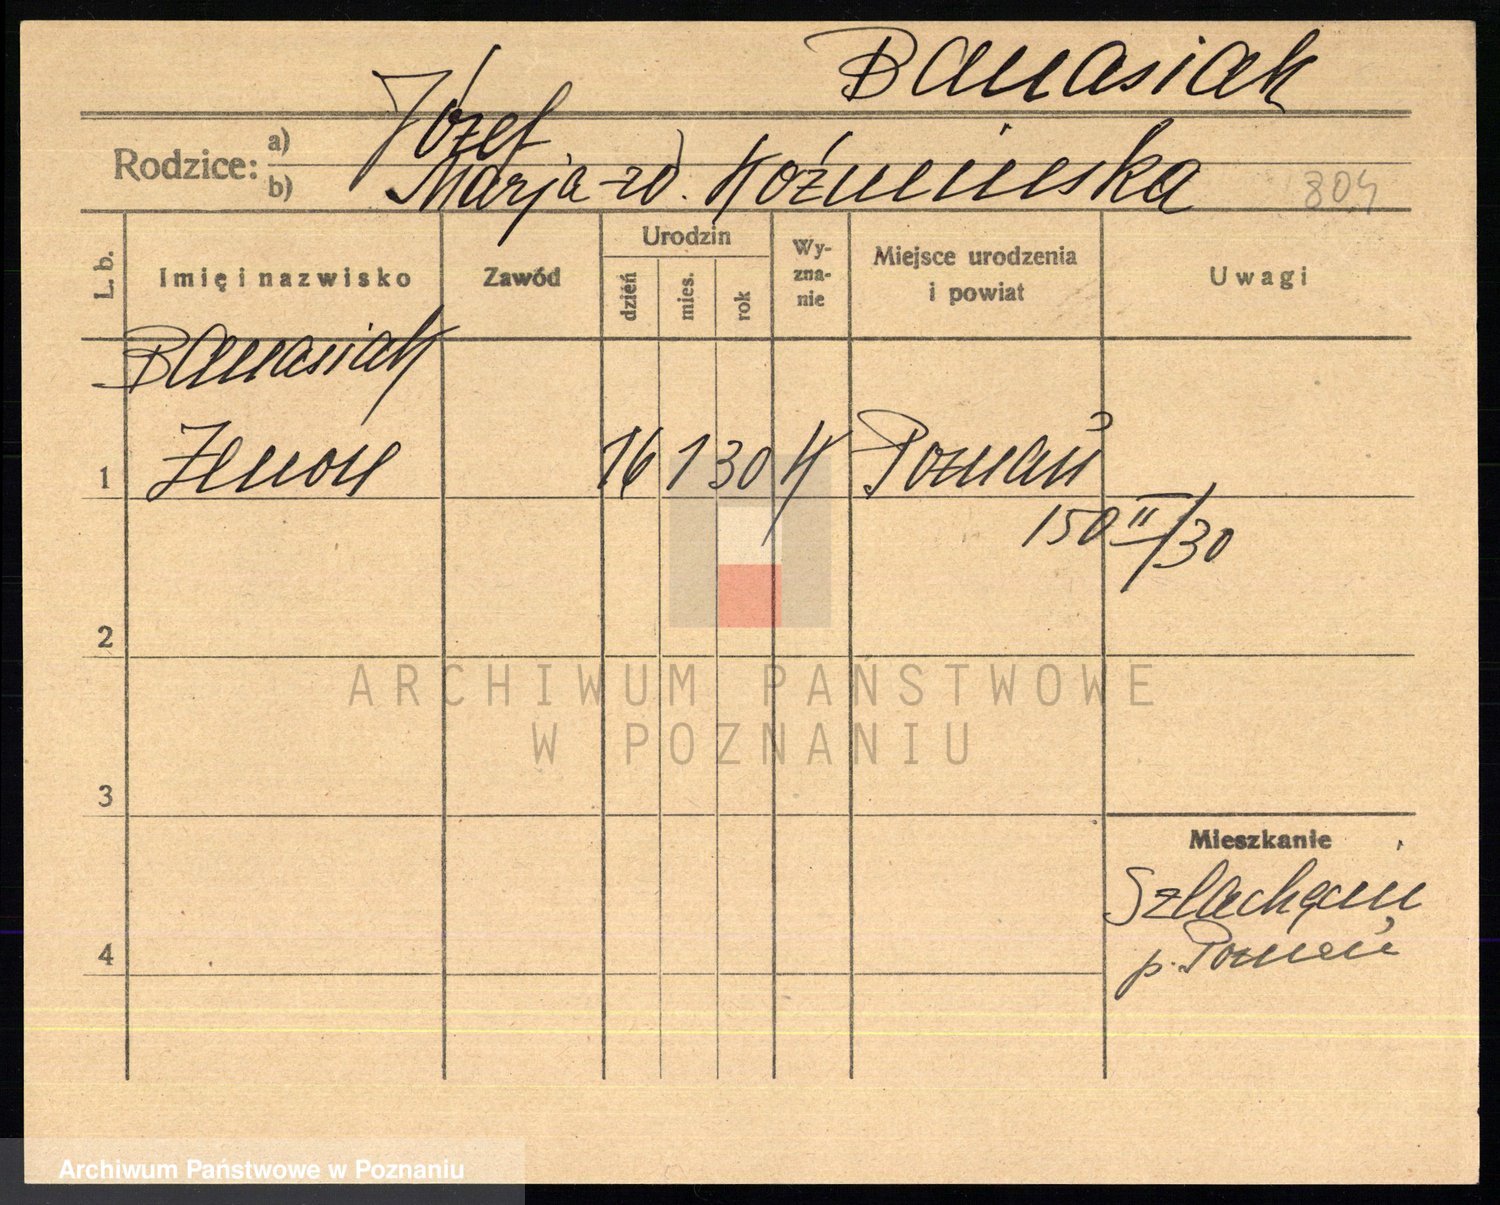 Banasiak
Rodzice: a) Józef
b) Marja zd. Koźmińska
804
L. b.
Imię i nazwisko
Zawód
Urodzin
dzień
mies.
rok
Wy-
zna-
nie
Miejsce urodzenia
i powiat
Uwagi
Banasiak
1 Zenon 16 1 30 K Poznań
150 II/30
2
3
4
Mieszkanie
p. Poznań
ARCHIWUM PAŃSTWOWE
W POZNANIU
Archiwum Państwowe w Poznaniu